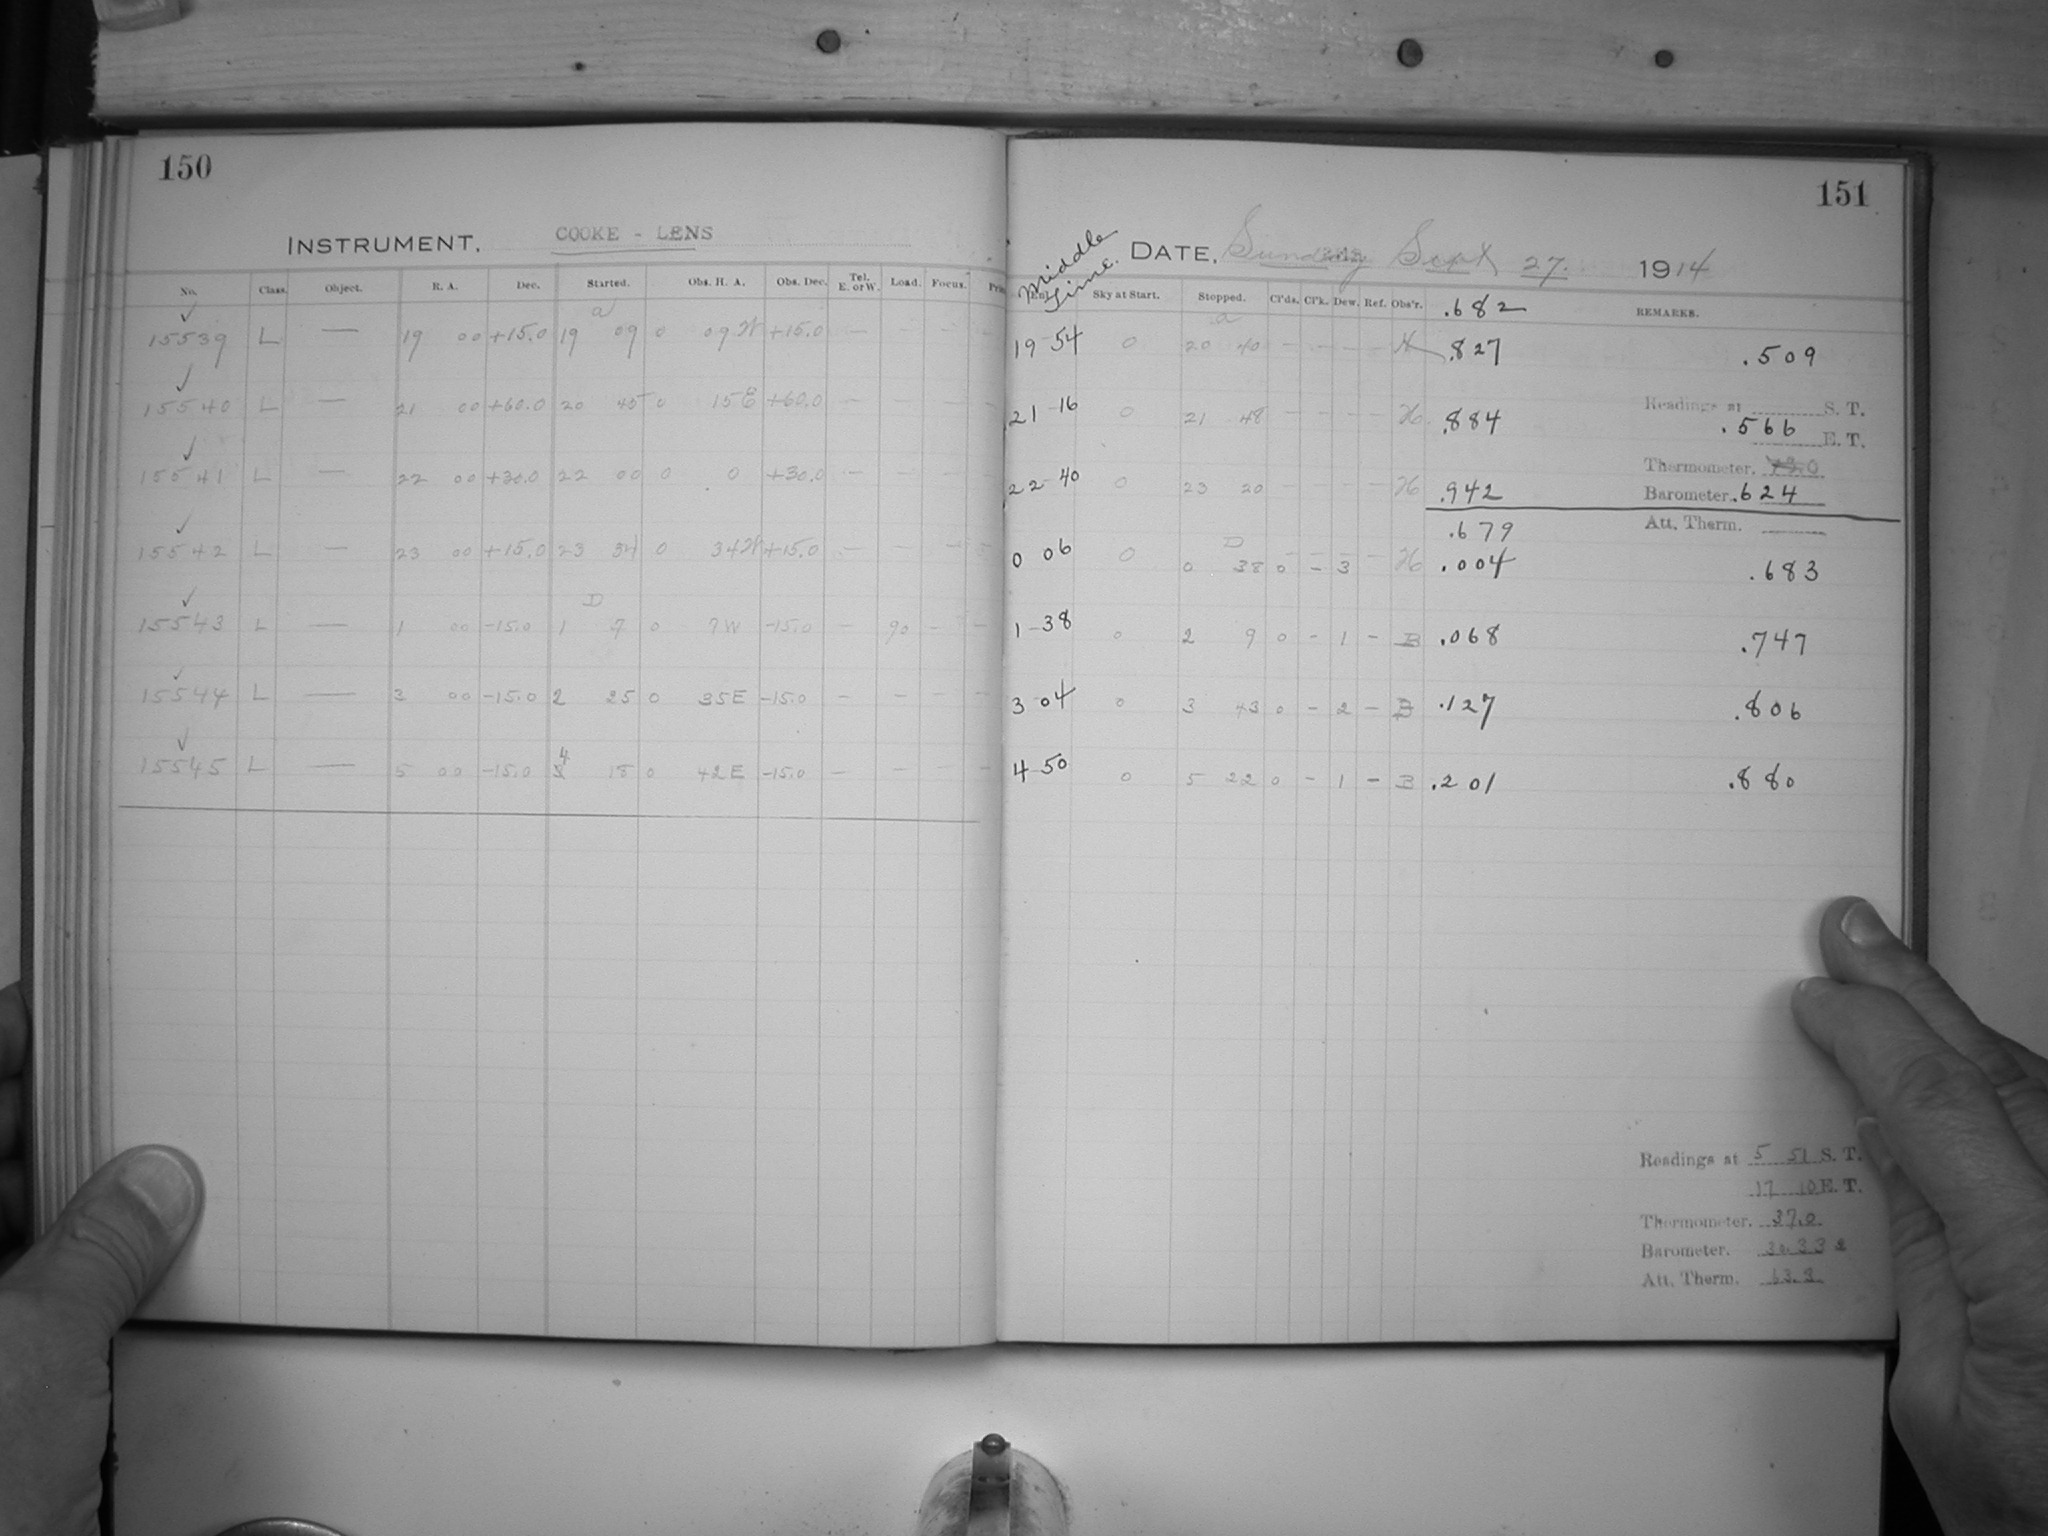 150
INSTRUMENT. COOKE - LENS
No. Class. Object. R. A. Dec. Started. Obs. H. A. Obs. Dec. Tel. E. or W. Load. Focus.
a
✓
15539 L — 19 00 +15.0 19 09 0 09 W +15.0 — — — —
✓
15540 L — 21 00 +60.0 20 45 0 15 E +60.0 — — — —
✓
15541 L — 22 00 +30.0 22 00 0 0 +30.0 — — — —
✓
15542 L — 23 00 +15.0 23 34 0 34 W +15.0 — — — —
✓ D
15543 L — 1 00 -15.0 1 7 0 7 W -15.0 — 90 — —
✓
15544 L — 3 00 -15.0 2 25 0 35 E -15.0 — — — —
✓ 4
15545 L — 5 00 -15.0 18 0 42 E -15.0 — — — —
151
Middle Time.
DATE, Sunday Sept 27. 1914
Sky at Start. Stopped. Cl'ds. Cl'k. Dew. Ref. Obs'r. .682 REMARKS.
a
19-54 0 20 40 - - - - H .827 .509
21-16 0 21 48 - - - - H .884
Readings at S. T.
.566 E. T.
Thermometer.
22-40 0 23 20 - - - - H .942
Barometer. .624
.679
Att. Therm.
D
0 06 0 0 38 0 - 3 - H .004 .683
1-38 0 2 9 0 - 1 - B .068 .747
3-04 0 3 43 0 - 2 - B .127 .806
4-50 0 5 22 0 - 1 - B .201 .880
Readings at 5 51 S. T.
17 10 E. T.
Thermometer. 37.0
Barometer. 30.33
Att. Therm.